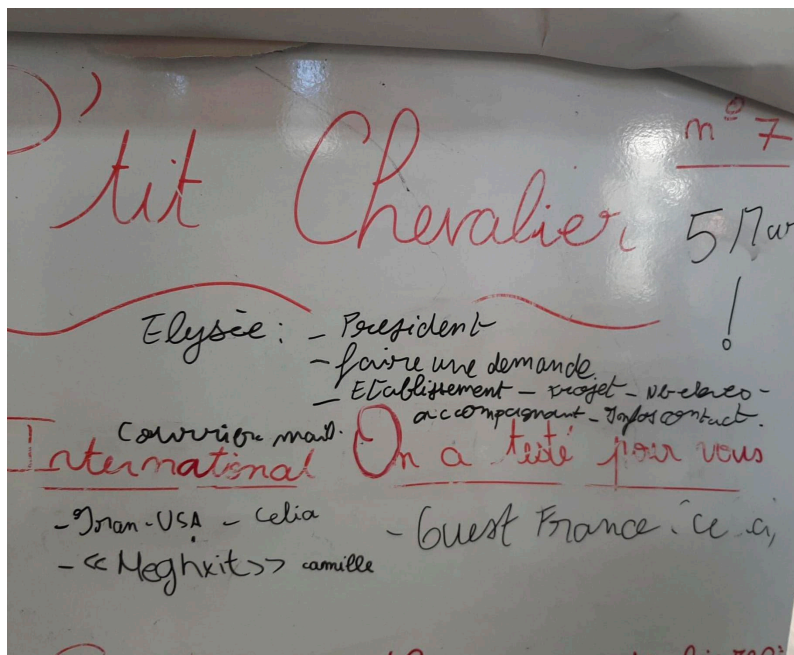 P'tit Chevalier
n° 7
5 Mar
!
Elysée : - President
- faire une demande.
- Etablissement - projet - Nb eleves -
accompagnant - Infos contact.
Courrier mail.
International
On a testé pour vous
- Iran-USA - Celia
- « Meghxit » camille
- Ouest France